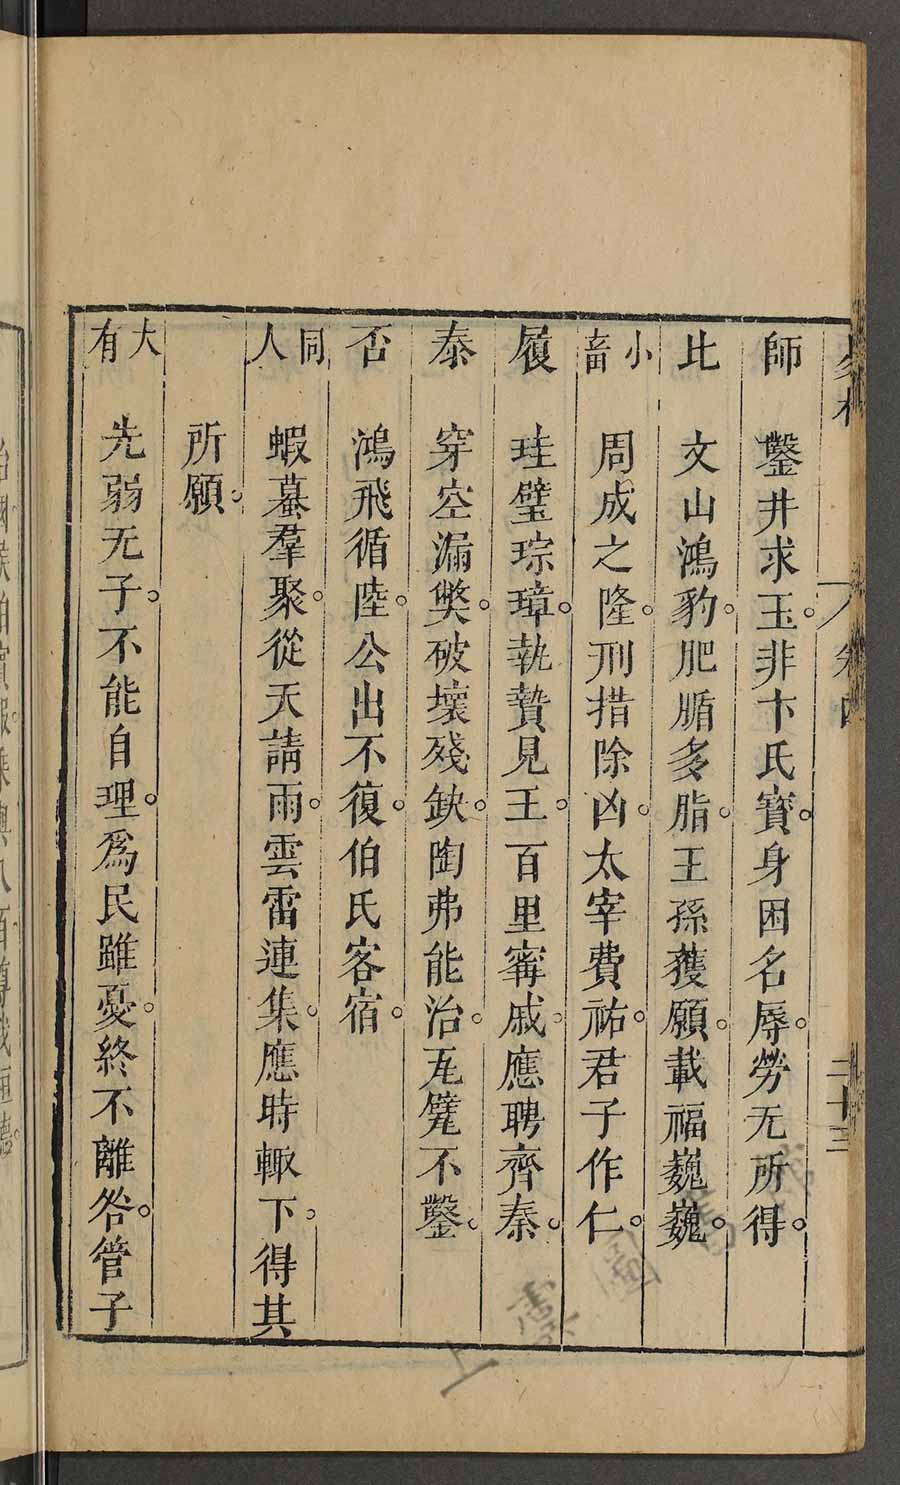 師 鑿井求玉。非卞氏寶。身困名辱。勞无所得。
比 文山鴻豹。肥腯多脂。王孫獲願。載福巍巍。
小畜 周成之隆。刑措除凶。太宰費祐。君子作仁。
履 珪璧琮璋。執贄見王。百里甯戚。應聘齊秦。
泰 穿空漏獘。破壞殘缺。陶弗能治。瓦甓不鑿。
否 鴻飛循陸。公出不復。伯氏客宿。
同人 蝦蟇羣聚。從天請雨。雲雷連集。應時輙下。得其
所願。
大有 先弱无子。不能自理。爲民雖憂。終不離咎。管子